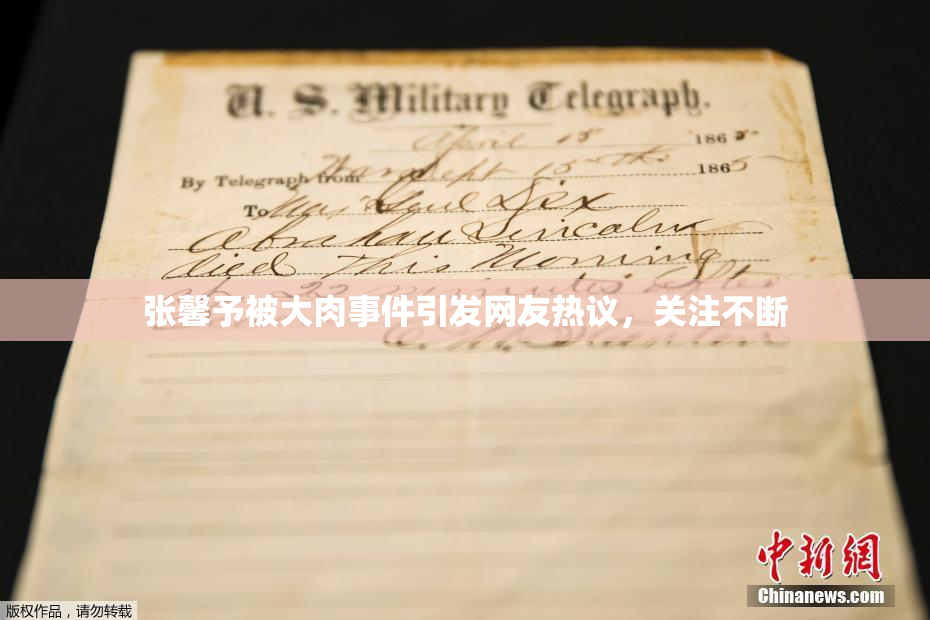 U. S. Military Telegraph.
April 15 1865
By Telegraph from War Dept 15th 1865
To Maj Genl Dix
Abraham Lincoln
died This Morning
at 22 minutes after
张馨予被大肉事件引发网友热议，关注不断
E. M. Stanton
中新网
Chinanews.com
版权作品，请勿转载